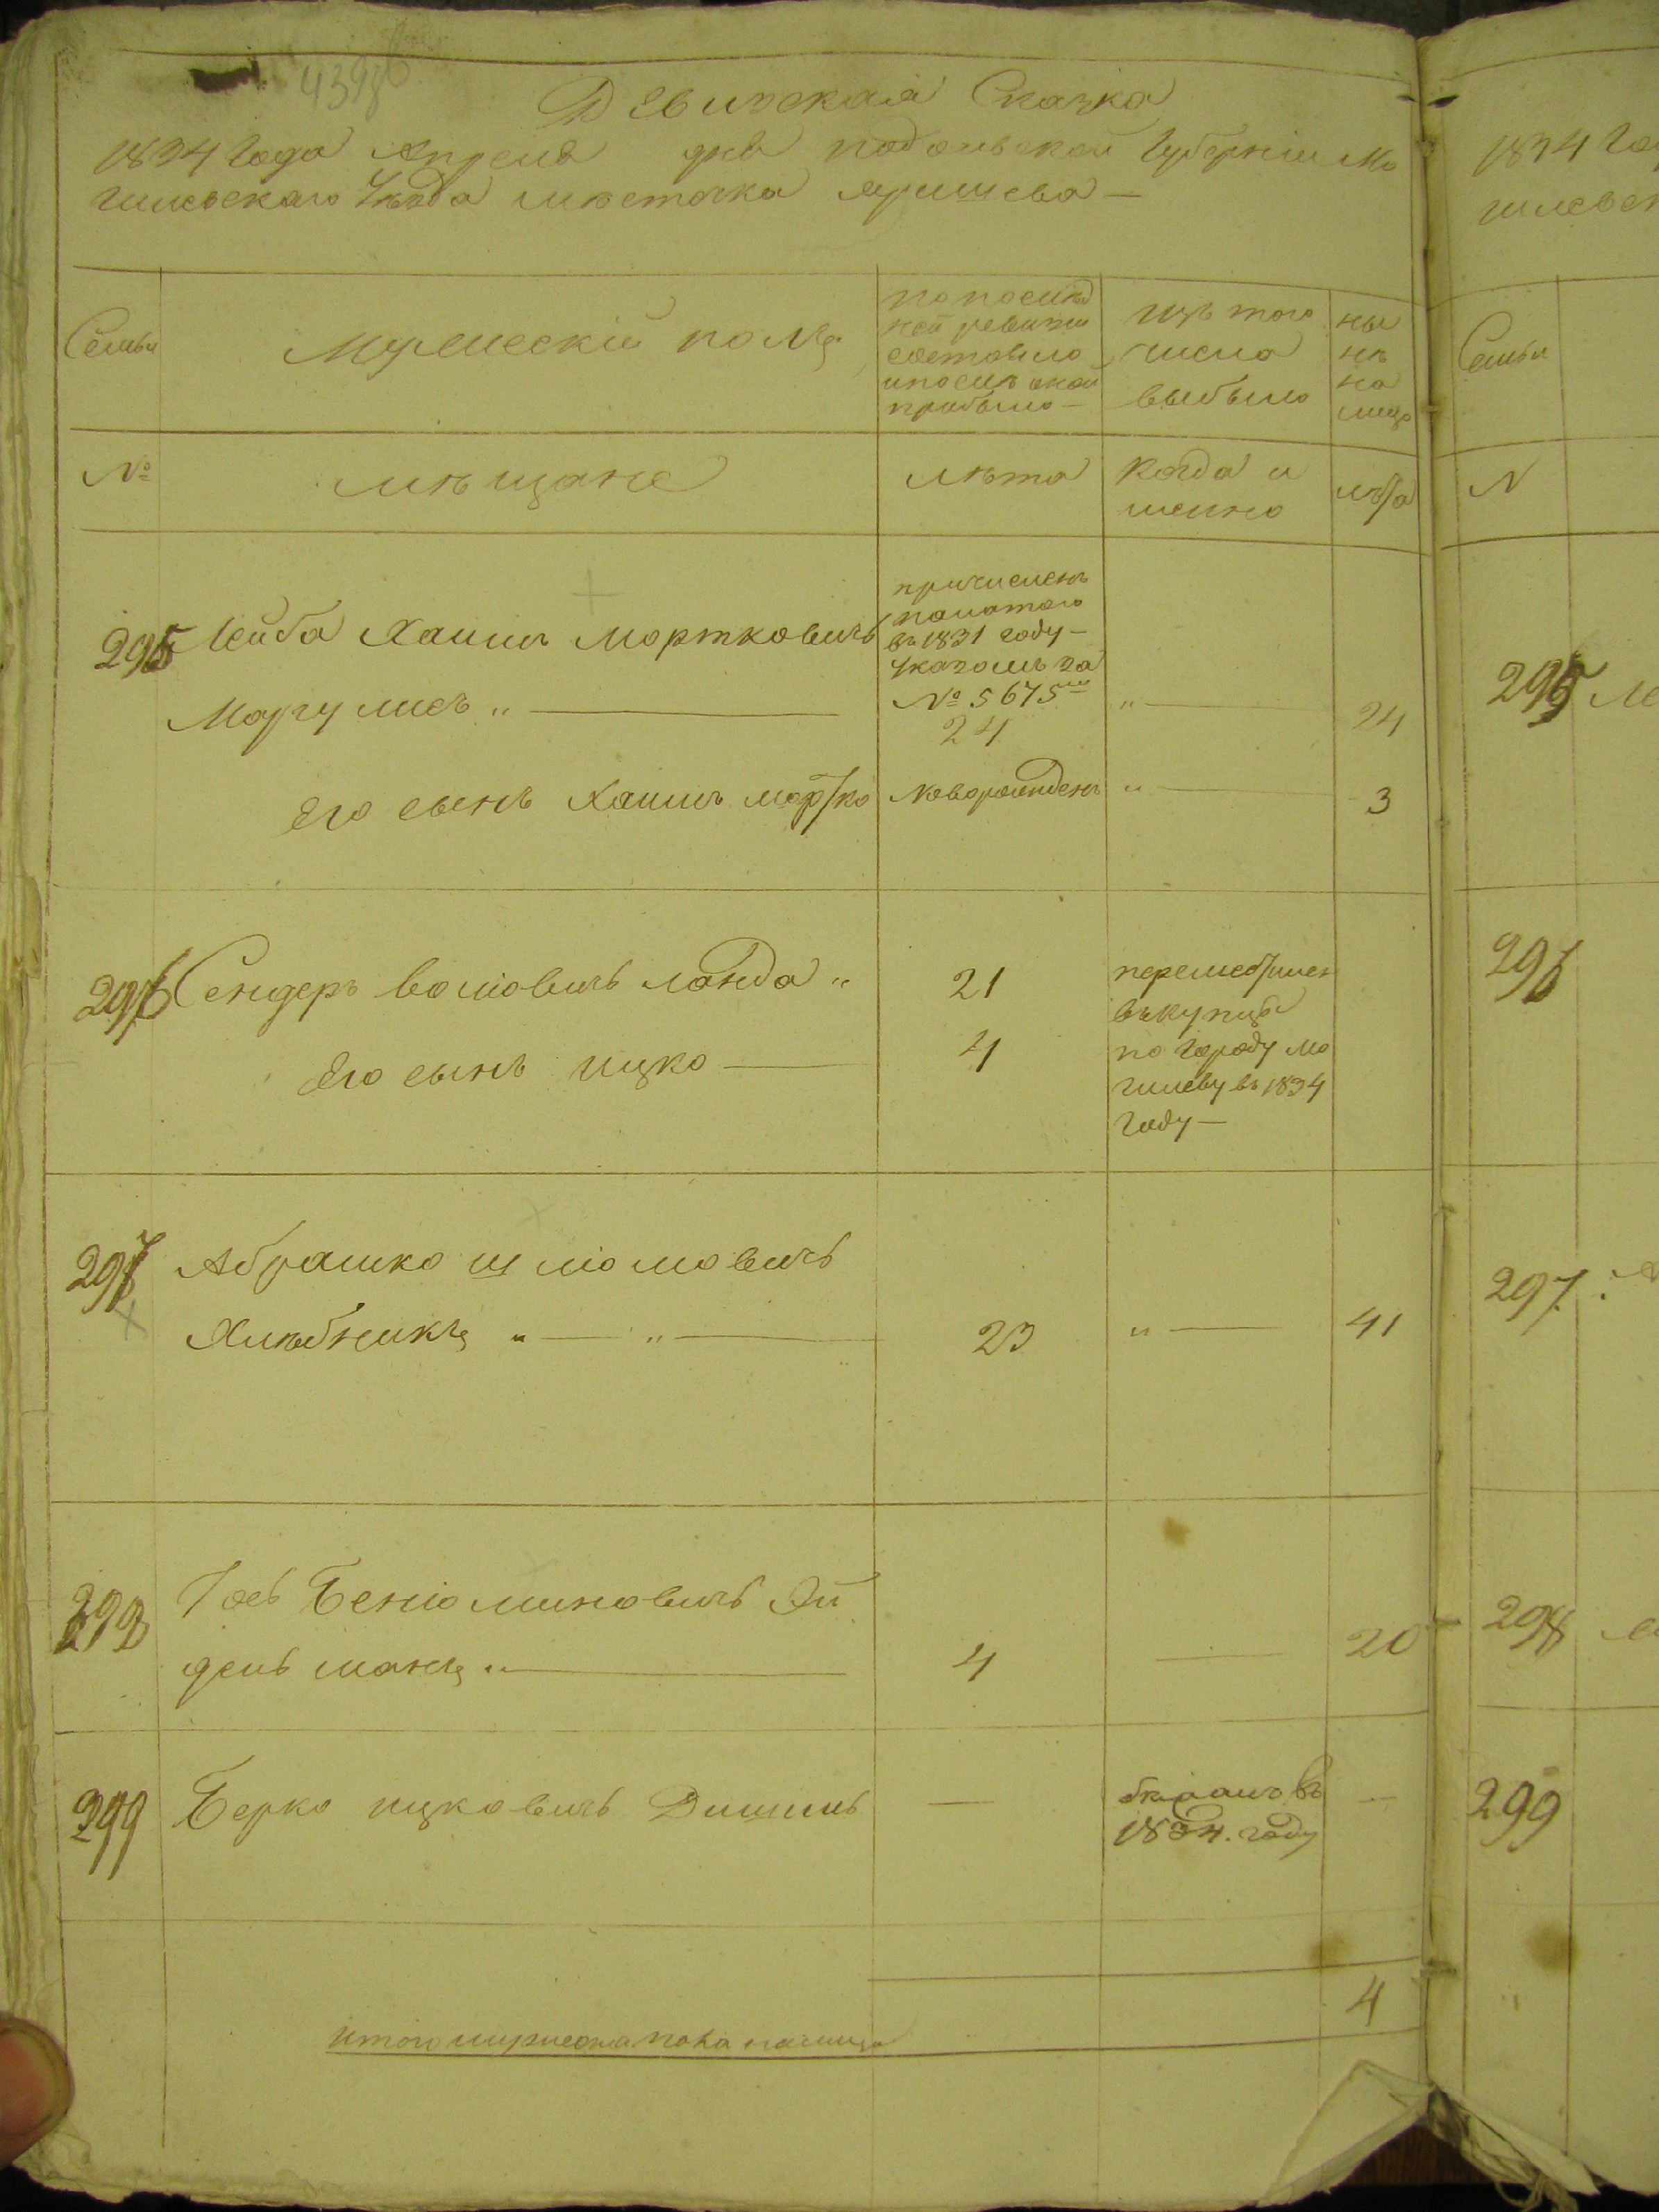 439об
Ревизская Сказка
1834 Года Апреля дня подольской Губернии Мо
гилевского Уѣзда мѣстечка яришева —
Семьи
Мужеский полъ
по послѣд
ней ревизіи
состояло
и после оной
прибыло —
изъ того
числа
выбыло
ны
нѣ
на
лицо
№
мѣщане
лѣта
Когда и
менно
лѣта
295
Лейба Хаимъ Мортковичъ
Маргулисъ „ —
причисленъ
въ 1831 году —
Указомъ за
№ 5675мъ
24
„ —
24
Его сынъ Хаимъ мортко
новорожденъ
„ —
3
296
Сендеръ воліовичъ ланда „
21
Его сынъ ицко —
4
перемѣщен
въ купцы
по городу Мо
гилеву въ 1834
году —
297
Абрашко шліомовичъ
Хлѣбникъ „ — „ —
23
„ —
41
298
Іосъ Беніоминовичъ Эй
дельманъ „ —
4
—
20
299
Берко ицковичъ Дишель
—
въ
1834. году
—
4
Итого мужеска пола налицо
1834 Го
гилевск
Семьи
N
295
Ле
296
297
298
299